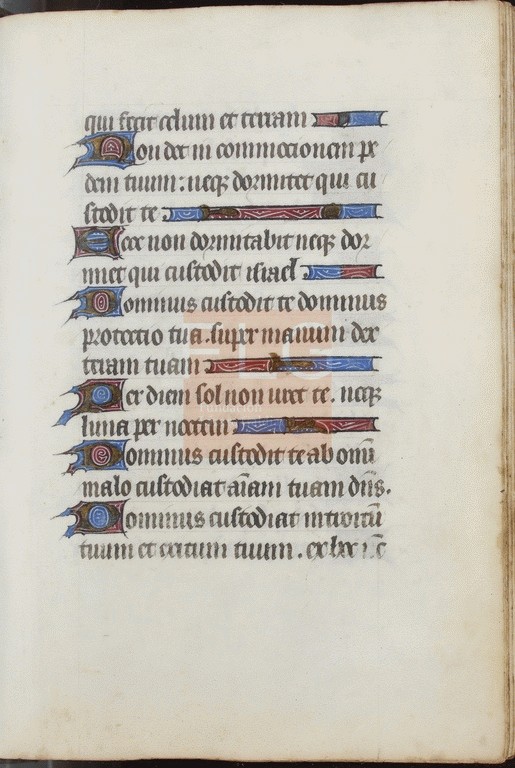 qui fecit celum et terram
Non det in commocionem pe
dem tuum : neq; dormitet qui cu
stodit te
Ecce non dormitabit neq; dor
miet qui custodit israel
Dominus custodit te dominus
protectio tua . super manum dex
teram tuam
Per diem sol non uret te . neq;
luna per noctem
Dominus custodit te ab om̄i
malo custodiat aīam tuam dn̄s .
Dominus custodiat introitū
tuum et exitum tuum . ex hoc
FLG
Fundación